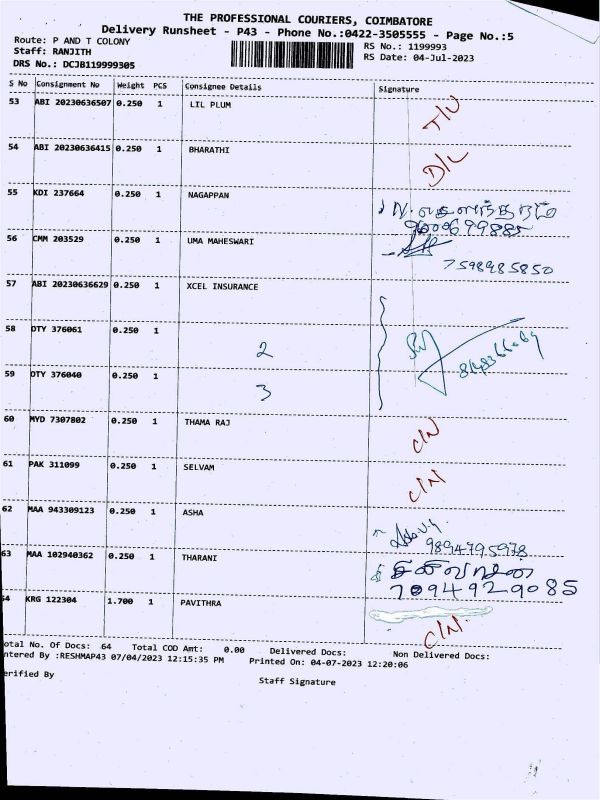 THE PROFESSIONAL COURIERS, COIMBATORE
Delivery Runsheet - P43 - Phone No.:0422-3505555 - Page No.:5
Route: P AND T COLONY RS No.: 1199993
Staff: RANJITH RS Date: 04-Jul-2023
DRS No.: DCJB119999305
S No Consignment No Weight PCS Consignee Details Signature
53 ABI 20230636507 0.250 1 LIL PLUM T/U
54 ABI 20230636415 0.250 1 BHARATHI D/L
55 KDI 237664 0.250 1 NAGAPPAN
9600699885
56 CMM 203529 0.250 1 UMA MAHESWARI
7598985850
57 ABI 20230636629 0.250 1 XCEL INSURANCE
58 OTY 376061 0.250 1 2
59 OTY 376040 0.250 1 3
60 MYD 7307802 0.250 1 THAMA RAJ C/N
61 PAK 311099 0.250 1 SELVAM C/N
62 MAA 943309123 0.250 1 ASHA
9894795978
63 MAA 102940362 0.250 1 THARANI
7094929085
64 KRG 122304 1.700 1 PAVITHRA C/N.
otal No. Of Docs: 64 Total COD Amt: 0.00 Delivered Docs: Non Delivered Docs:
ntered By :RESHMAP43 07/04/2023 12:15:35 PM Printed On: 04-07-2023 12:20:06
erified By
Staff Signature